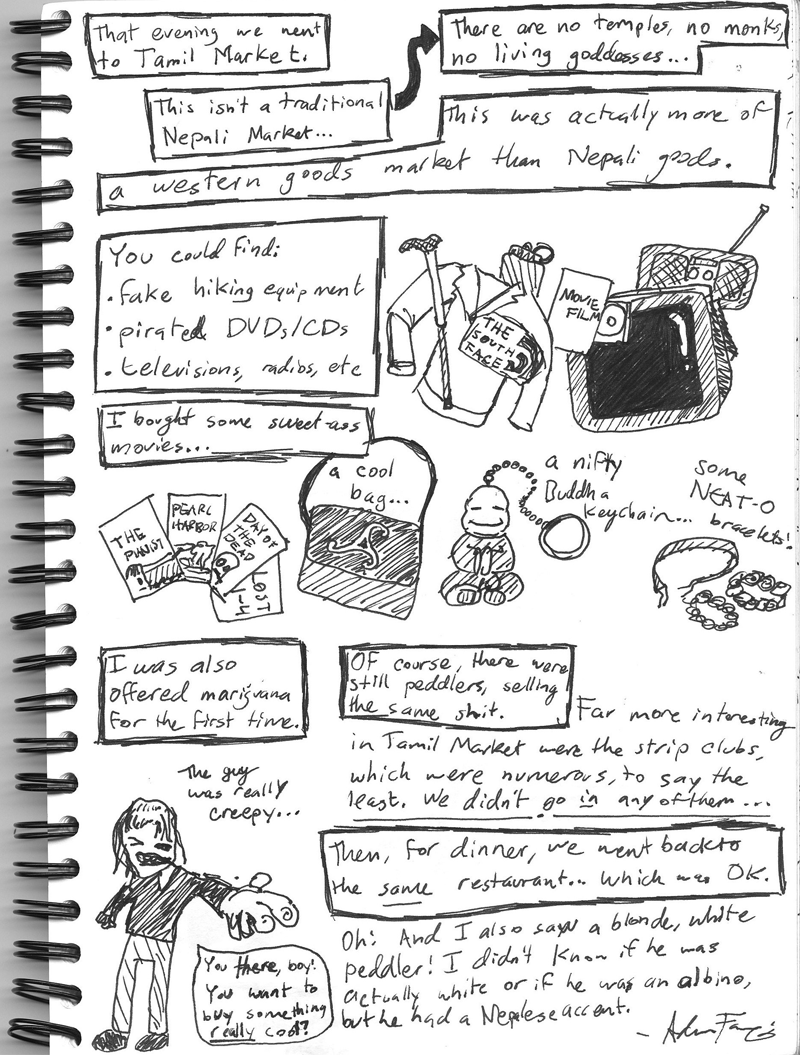 That evening we went
to Tamil Market.
This isn't a traditional
Nepali Market...
There are no temples, no monks,
no living goddesses...
This was actually more of
a western goods market than Nepali goods.
You could find:
• fake hiking equipment
• pirated DVDs/CDs
• televisions, radios, etc
THE
SOUTH
FACE
MOVIE
FILM
I bought some sweet-ass
movies...
THE
PIANIST
PEARL
HARBOR
DAY OF
THE
DEAD
LOST
1-4
a cool
bag...
a nifty
Buddha
keychain...
some
NEAT-O
bracelets!
I was also
offered marijuana
for the first time.
The guy
was really
creepy...
You there, boy!
You want to
buy something
really cool?
Of course, there were
still peddlers, selling
the same shit.
Far more interesting
in Tamil Market were the strip clubs,
which were numerous, to say the
least. We didn't go in any of them...
Then, for dinner, we went back to
the same restaurant... which was OK.
Oh! And I also saw a blonde, white
peddler! I didn't know if he was
actually white or if he was an albino,
but he had a Nepalese accent.